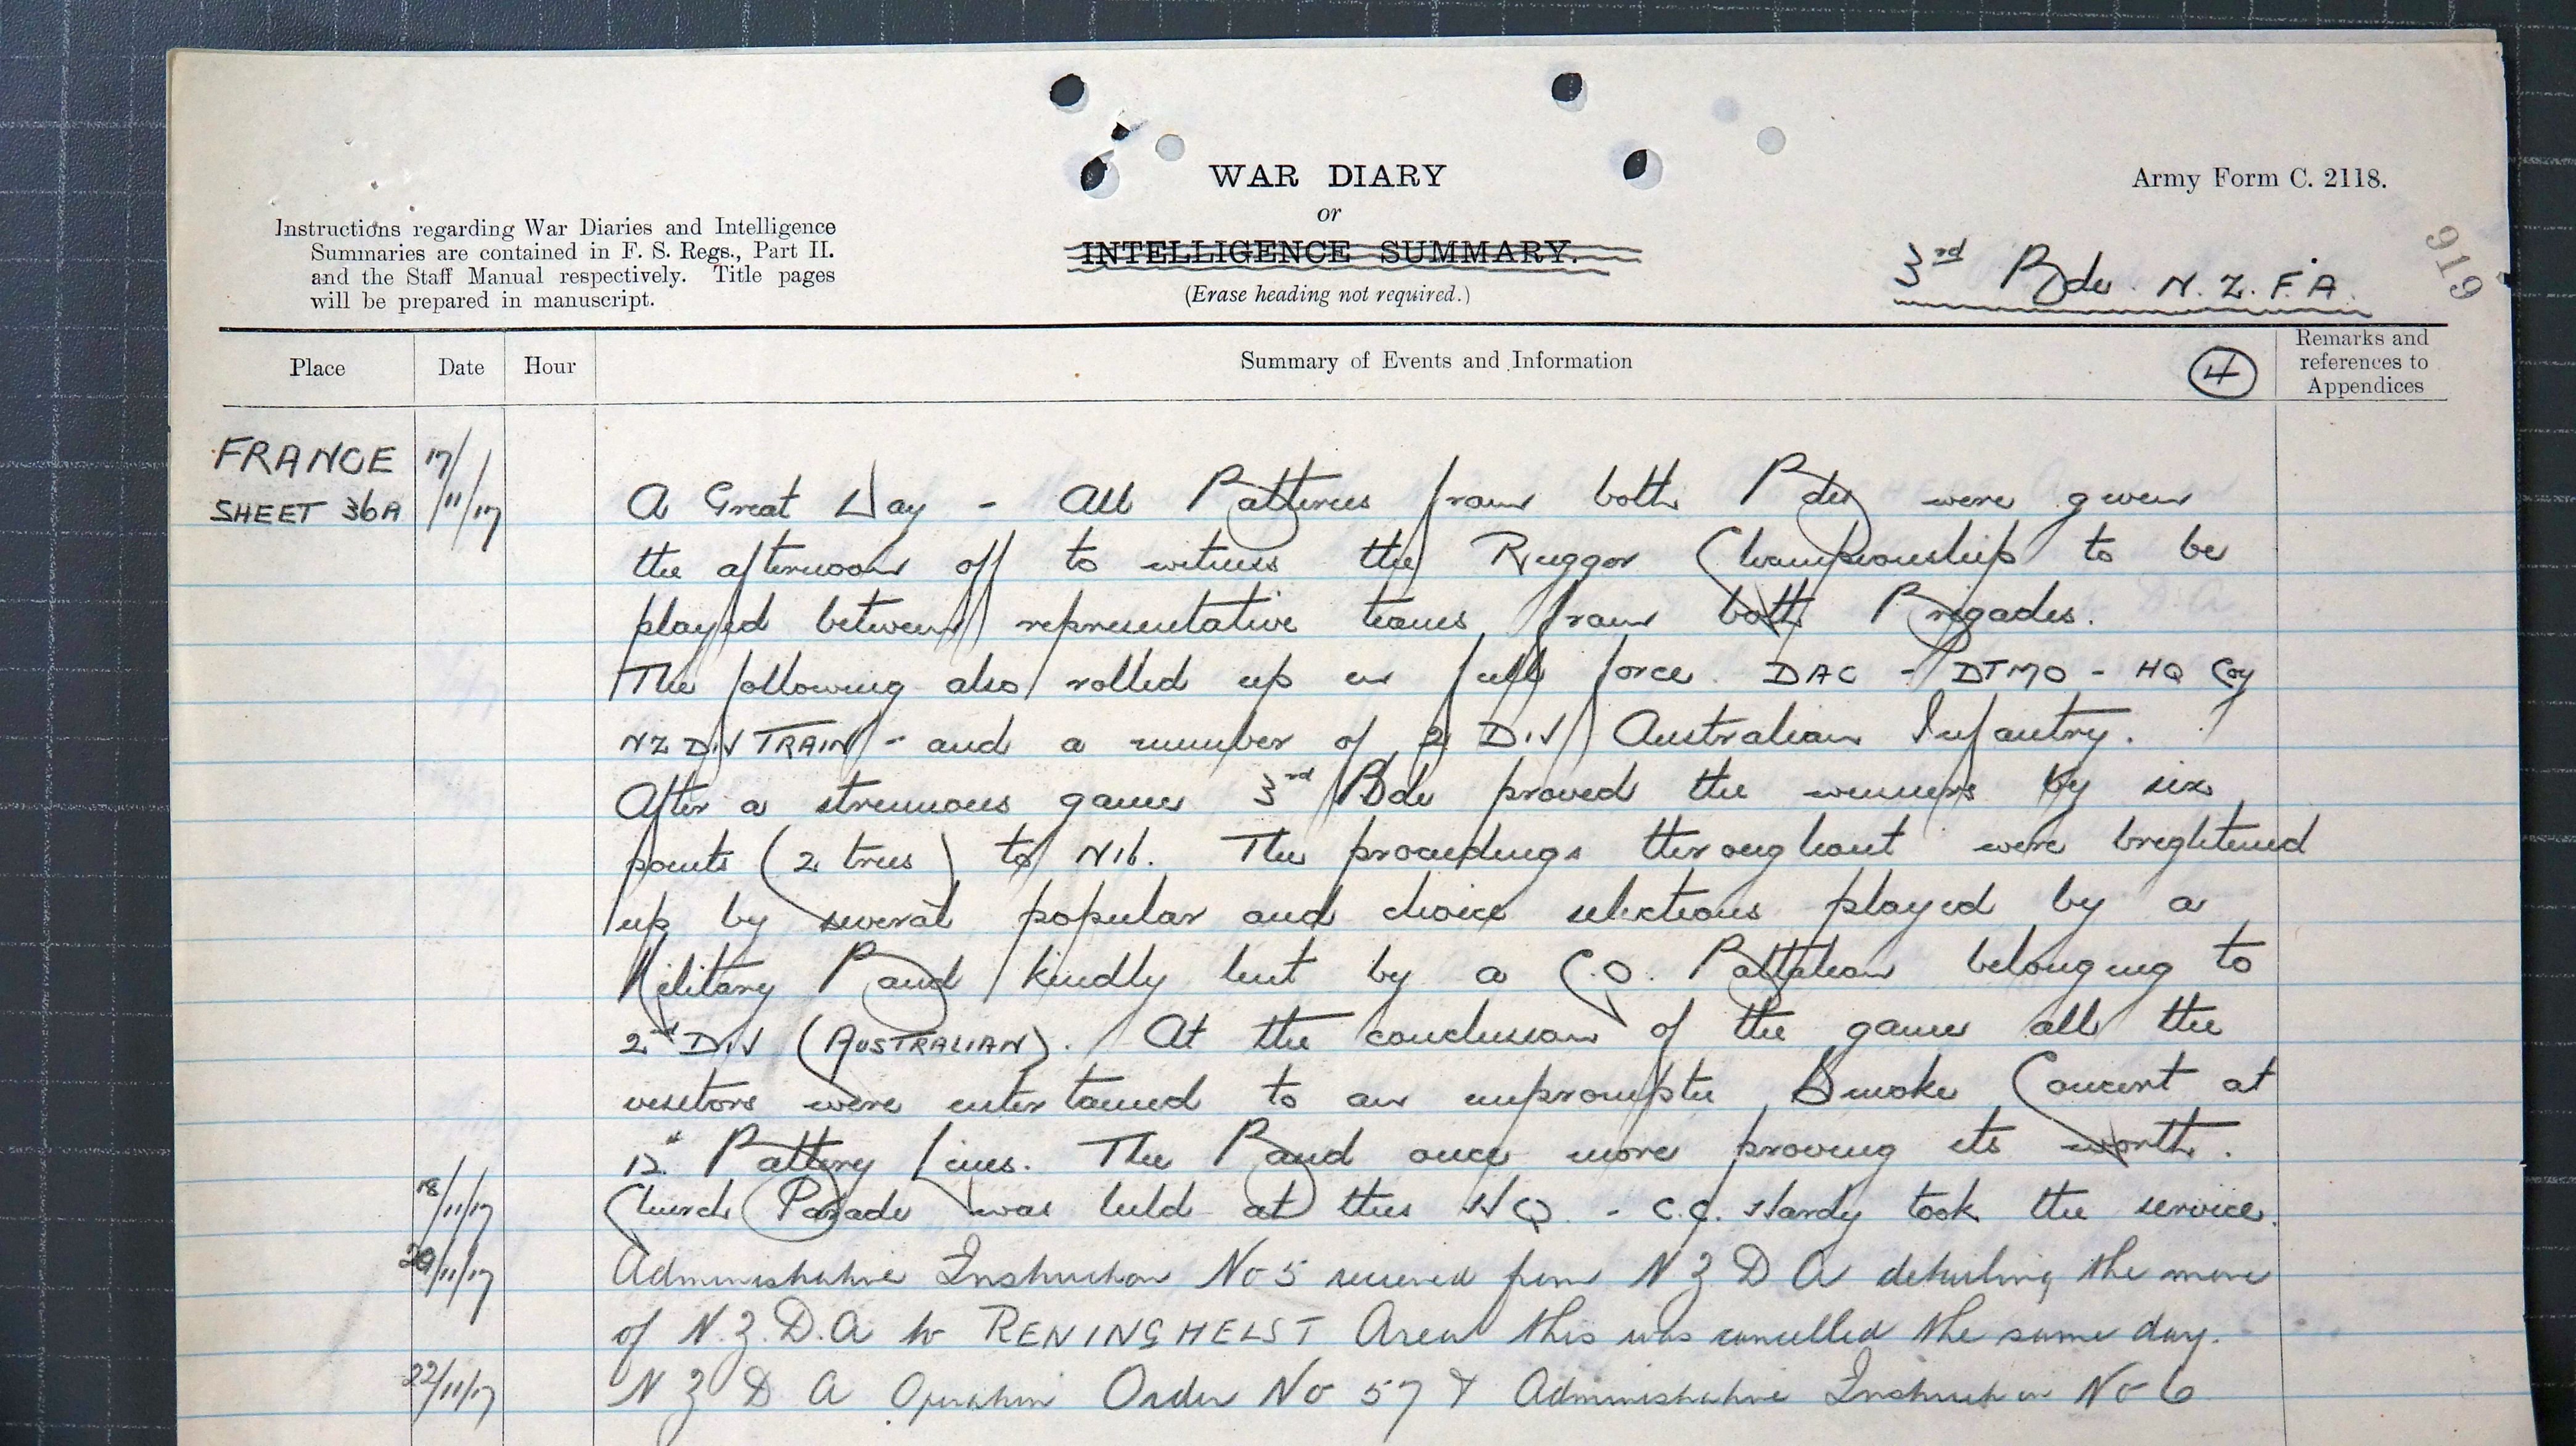 WAR DIARY
or
INTELLIGENCE SUMMARY.
(Erase heading not required.)
Army Form C. 2118.
Instructions regarding War Diaries and Intelligence
Summaries are contained in F. S. Regs., Part II.
and the Staff Manual respectively. Title pages
will be prepared in manuscript.
3rd Bde. N.Z.F.A.
919
Place Date Hour Summary of Events and Information 4 Remarks and references to Appendices
FRANCE
SHEET 36A
17/11/17
A Great Day - All Batteries from both Bdes were given
the afternoon off to witness the Rugger Championship to be
played between representative teams from both Brigades.
The following also rolled up in full force. DAC - DTMO - HQ Coy
NZ DIV TRAIN - and a number of 2 DIV Australian Infantry.
After a strenuous game 3rd Bde proved the winners by six
points (2 tries) to Nil. The proceedings throughout were brightened
up by several popular and choice selections played by a
Military Band kindly lent by a Battalion belonging to
2nd DIV (AUSTRALIAN). At the conclusion of the game all the
visitors were entertained to an impromptu Smoke Concert at
Battery Lines. The Band once more proving its worth.
18/11/17 Church Parade was held at this HQ - C.C. Hardy took the service.
/11/17 Administrative Instruction No 5 received from N Z D A detailing the move
of N.Z.D.A to RENINGHELST Area this was cancelled the same day.
22/11/17 N Z D A Operation Order No 57 & Administrative Instruction No 6